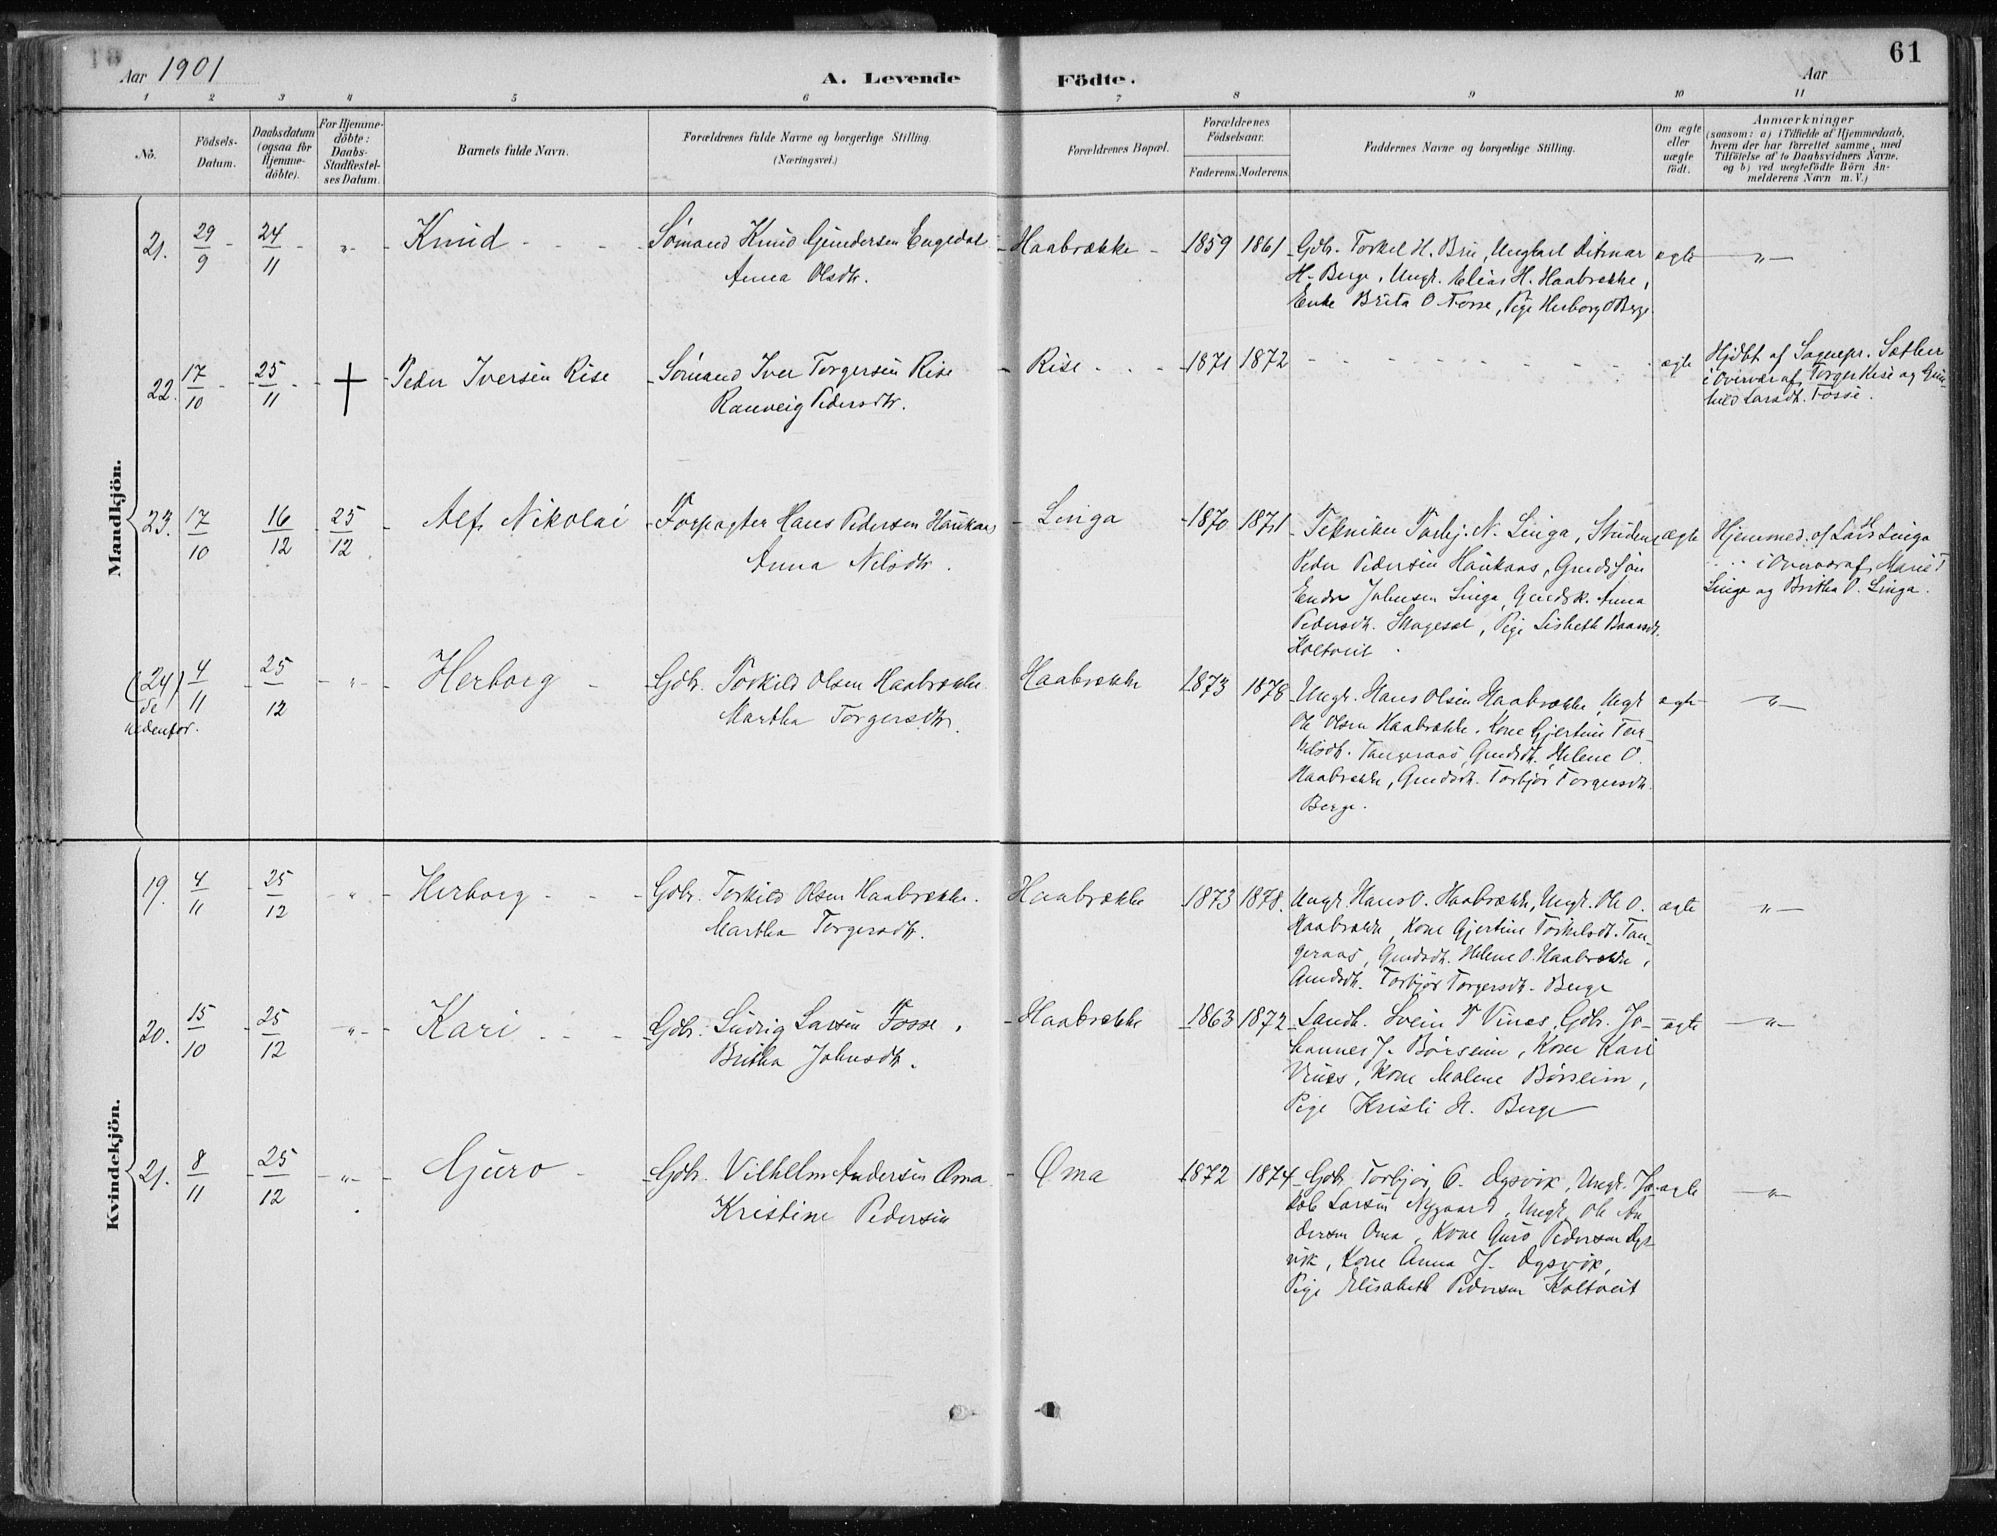 Aar 1901
A. Levende
Födte.
Aar
61
1 2 3 4 5 6 7 8 9 10 11
No.
Födsels-
Datum.
Daabsdatum
(ogsaa for
Hjemme-
döbte).
For Hjemme-
döbte:
Daabs-
Stadfæstel-
ses Datum.
Barnets fulde Navn.
Forældrenes fulde Navne og borgerlige Stilling.
(Næringsvei.)
Forældrenes Bopæl.
Forældrenes
Födselsaar.
Faderens. Moderens.
Faddernes Navne og borgerlige Stilling.
Om ægte
eller
uægte
født.
Anmærkninger
(saasom: a) i Tilfælde af Hjemmedaab,
hvem der har forrettet samme, med
Tilföielse af to Daabsvidners Navne,
og b) ved uægtefödte Börn An-
melderens Navn m. V.)
Mandkjön.
21. 29/9 - 24/11 - " - Knud - - - Sømand Knud Gundersen Engedal - Haabrække - 1859 1861 Gdbr. Torkel H. Bru, Ungkarl Ditmar ægte - " -
Anna Olsdtr.
H. Berge, Ungk. Elias H. Haabrække,
Enke Brita O Fosse, Pige Herborg O Berge.
22. 17/10 - 25/11 - † - Peder Iversen Rise - Sømand Iver Torgersen Rise - Rise - - - 1871 1872 - - - ægte
Ranveig Pedersdtr.
Hjdbt af Sognepr. Sæther
i Overvær af Torger Rise og Gun-
hild Larsdtr. Fosse.
23. 17/10 16/12 - 25/12 - Alf Nikolai - Forpagter Hans Pedersen Haukaas - Linga - 1870 1871 - Tekniker Torbj. N. Linga, Student ægte
Anna Nilsdtr.
Peder Pedersen Haukaas, Grmdssøn
Endre Johnsen Linga, Grmdsk. Anna
Pedersdtr. Skagesæt, Pige Lisbeth Baarsdtr.
Koltveit.
Hjemmed. af Lars H Linga
.. .. i Overvær af Marie T
Linga og Britha O. Linga.
(24) 4/11 - 25/12 - " - Herborg - Gdbr. Torkild Olsen Haabrække Haabrække 1873 1878 Ungk. Hans Olsen Haabrække, Ungk ægte - " -
se
nedenfor.
Martha Torgersdtr.
Ole Olsen Haabrække. Kone Gjertine Tor-
kilsdtr. Tangeraas, Grmdsdtr. Helene O.
Haabrække, Grmdsdtr. Torbjør Torgersdtr.
Berge.
Kvindekjön.
19. 4/11 - 25/12 - " - Herborg - - - Gdbr. Torkild Olsen Haabrække. Haabrække 1873 1878. Ungk Hans O. Haabrække, Ungk. Ole O. ægte - " -
Martha Torgersdtr.
Haabrække, Kone Gjertine Torkilsdtr. Tan-
geraas, Grmdsdtr. Helene O. Haabrække,
Grmdsdtr. Torbjør Torgersdtr. Berge
20. 15/10 - 25/12 - " - Kari - - - Gdbr. Ludvig Larsen Fosse. - Haabrække - 1863 1872 - Landh. Svein T Vines, Gdbr. Jo- ægte - " -
Britha Johnsdtr.
hannes J. Børseim, Kone Kari
Vines, Kone Malene Børseim,
Pige Kristi H. Berge
21. 8/11 - 25/12 - " - Guro - Gdbr. Vilhelm Andersen Oma - Oma 1872 1874 - Gdbr Torbjør O. Dysvik, Ungk. Ja- ægte - " -
Kristine Pedersen
kob Larsen Nygaard, Ungk Ole An
dersen Oma, Kone Guro Pedersen Dys
vik, Kone Anna J. Dysvik,
Pige Elisabeth Pedersen Koltveit